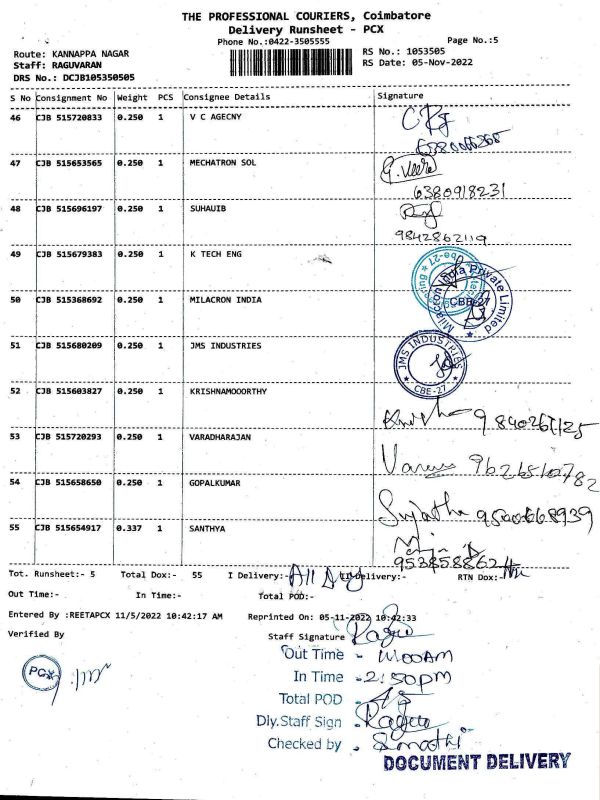 THE PROFESSIONAL COURIERS, Coimbatore
Delivery Runsheet - PCX
Phone No.:0422-3505555
Page No.:5
Route: KANNAPPA NAGAR
RS No.: 1053505
Staff: RAGUVARAN
RS Date: 05-Nov-2022
DRS No.: DCJB105350505
S No Consignment No Weight PCS Consignee Details Signature
46 CJB 515720833 0.250 1 V C AGECNY
47 CJB 515653565 0.250 1 MECHATRON SOL
G. Veera
6380918231
48 CJB 515696197 0.250 1 SUHAUIB
9842862119
49 CJB 515679383 0.250 1 K TECH ENG
50 CJB 515368692 0.250 1 MILACRON INDIA
Milacron India Private Limited
CBE-27
51 CJB 515680209 0.250 1 JMS INDUSTRIES
JMS INDUSTRIES
CBE-27
52 CJB 515603827 0.250 1 KRISHNAMOOORTHY
53 CJB 515720293 0.250 1 VARADHARAJAN
54 CJB 515658650 0.250 1 GOPALKUMAR
Sujatha
55 CJB 515654917 0.337 1 SANTHYA
Tot. Runsheet:- 5 Total Dox:- 55 I Delivery:- All II Delivery:- RTN Dox:-
Out Time:- In Time:- Total POD:-
Entered By :REETAPCX 11/5/2022 10:42:17 AM Reprinted On: 05-11-2022 10:42:33
Verified By
Staff Signature
PCX
Out Time - 11.00AM
In Time - 2:50pm
Total POD -
Dly.Staff Sign -
Checked by -
DOCUMENT DELIVERY